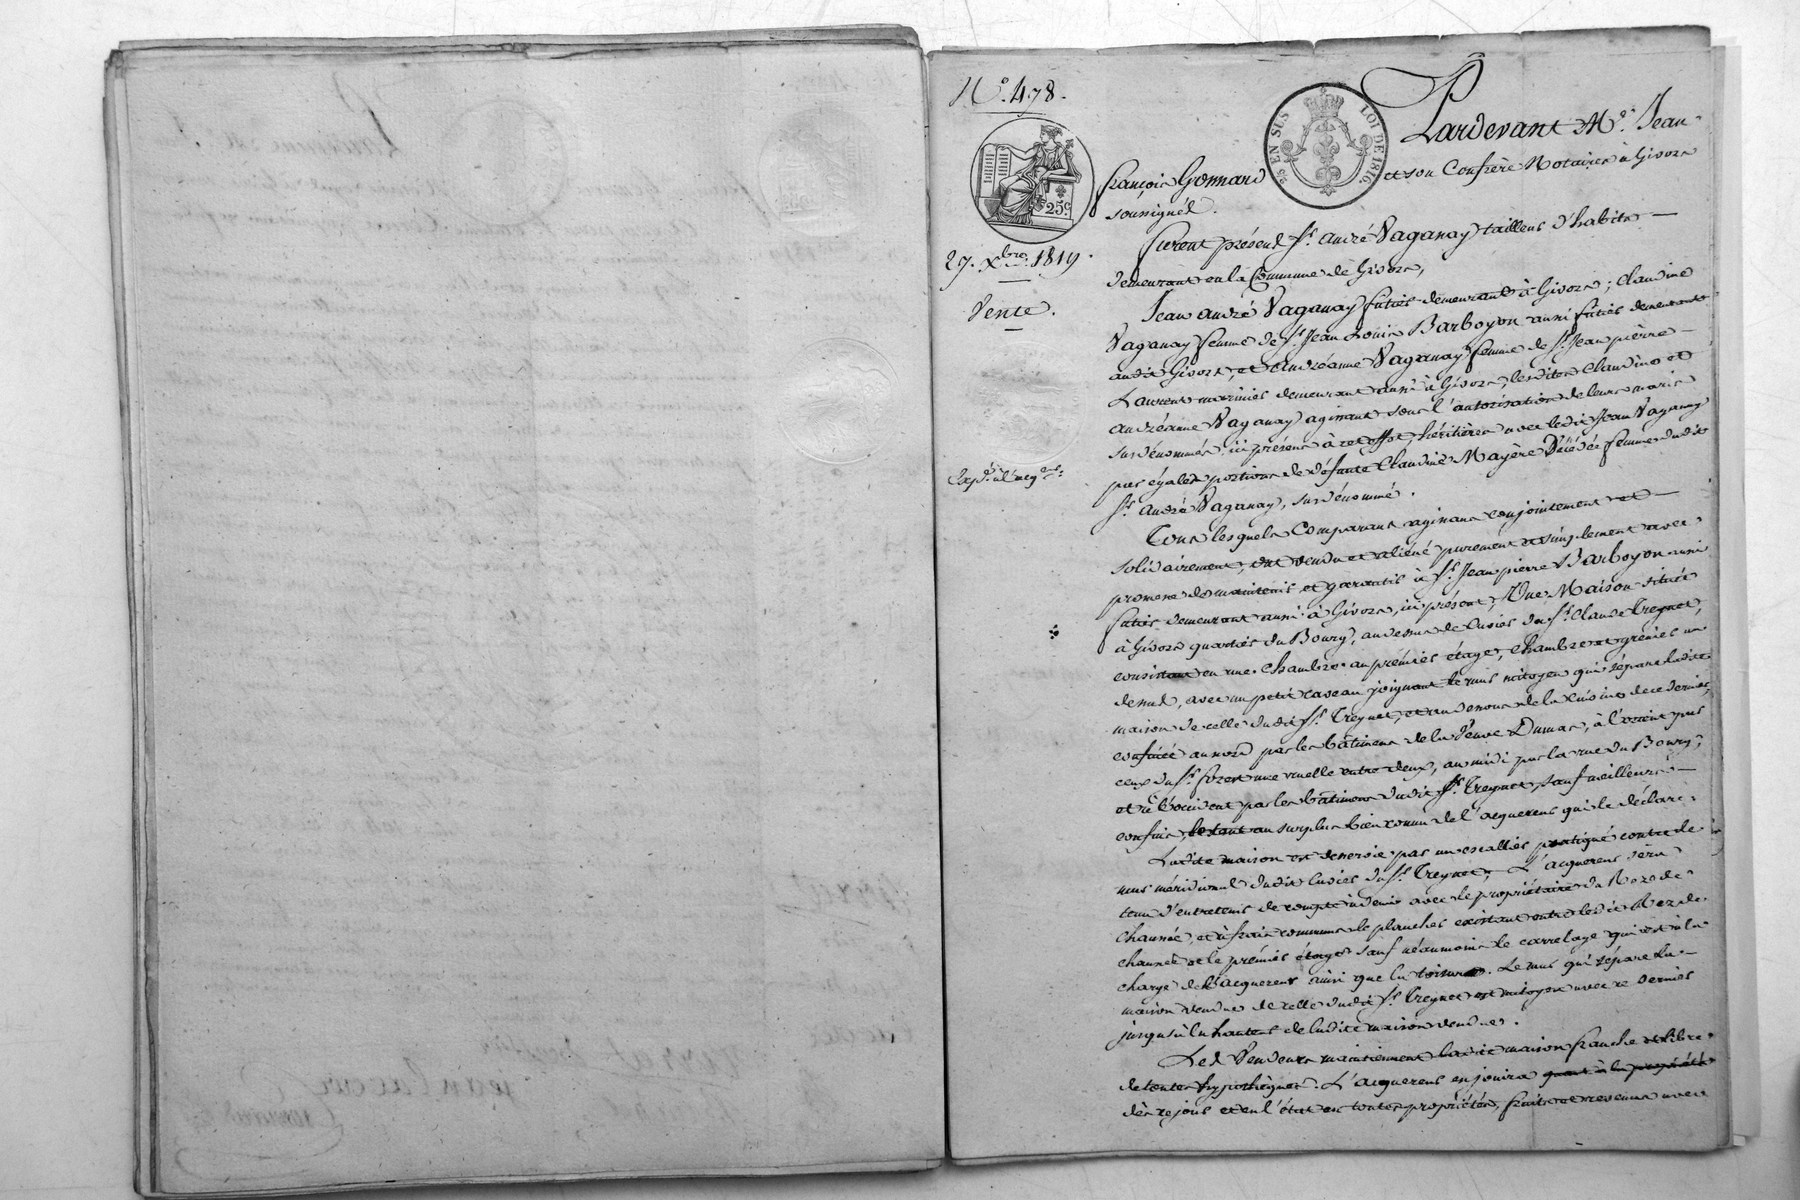 N.º 478.
25 EN SUS
LOI DE 1816.
25.ᶜ
27. Xbre. 1819.
Vente.
Pardevant Me. Jean-
françois Gonnard et son Confrère Notaires à Givors
soussignés.
furent présens Sr. André Vaganay tailleur d'habits
demeurant en la Commune de Givors,
Jean André Vaganay futier demeurant à Givors; Claudine
Vaganay femme de Sr. Jean Louis Barboyon aussi futier demeurant
audit Givors, et Andréanne Vaganay femme de Sr. Jean pierre
Laurent marinier demeurant aussi à Givors, lesdites Claudine et
Andréanne Vaganay agissant sous l'autorisation de leurs maris
susdénommés, ici présens à cet effet, héritières avec ledit Jean Vaganay
par égales portions de défunte Claudine Mayère Décédée femme dudit
Sr. André Vaganay, susdénommé.
Tous lesquels Comparants agissans conjointement et
solidairement, ont vendu et aliéné purement et simplement avec
promesse de maintenir et garantir à Sr. Jean pierre Barboyon aussi
futier demeurant aussi à Givors, ici présent, Une Maison située
à Givors quartier du Bourg, au dessus de l'uvier du Sr. Claude Treynet,
consistant en une Chambre au premier étage, Chambre et grenier au
dessus, avec un petit caveau joignant le mur mitoyen qui sépare ladite
maison de celle dudit Sr. Treynet, et au dessous de la Cuisine de ce dernier,
confinée au nord par les bâtimens de la Veuve Dumas, à l'orient par
ceux du Sr. une ruelle entre deux, au midi par la rue du Bourg,
et à l'occident par les bâtimens dudit Sr. Treynet, sauf meilleurs
confins, le tout au surplus bien connu de l'acquereur qui le déclare.
Ladite maison est desservie par un escallier pratiqué contre le
mur méridional dudit l'uvier du Sr. Treynet; L'acquereur sera
tenu d'entretenir de compte à demi avec le propriétaire du Rez de
chaussée, et à frais communs le plancher existant entre ledit Rez de
chaussée et le premier étage sauf néanmoins le carrelage qui est à la
charge de l'acquereur ainsi que la toiture. Le mur qui sépare la
maison vendue de celle dudit Sr. Treynet est mitoyen avec ce dernier
jusqu'à la hauteur de ladite maison vendue.
Les Vendeurs maintiennent ladite maison franche et libre
de toutes hypothèques. L'acquereur en jouira quant à la propriété
dès ce jour et en l'état en toutes propriétés, fruits et revenus avec